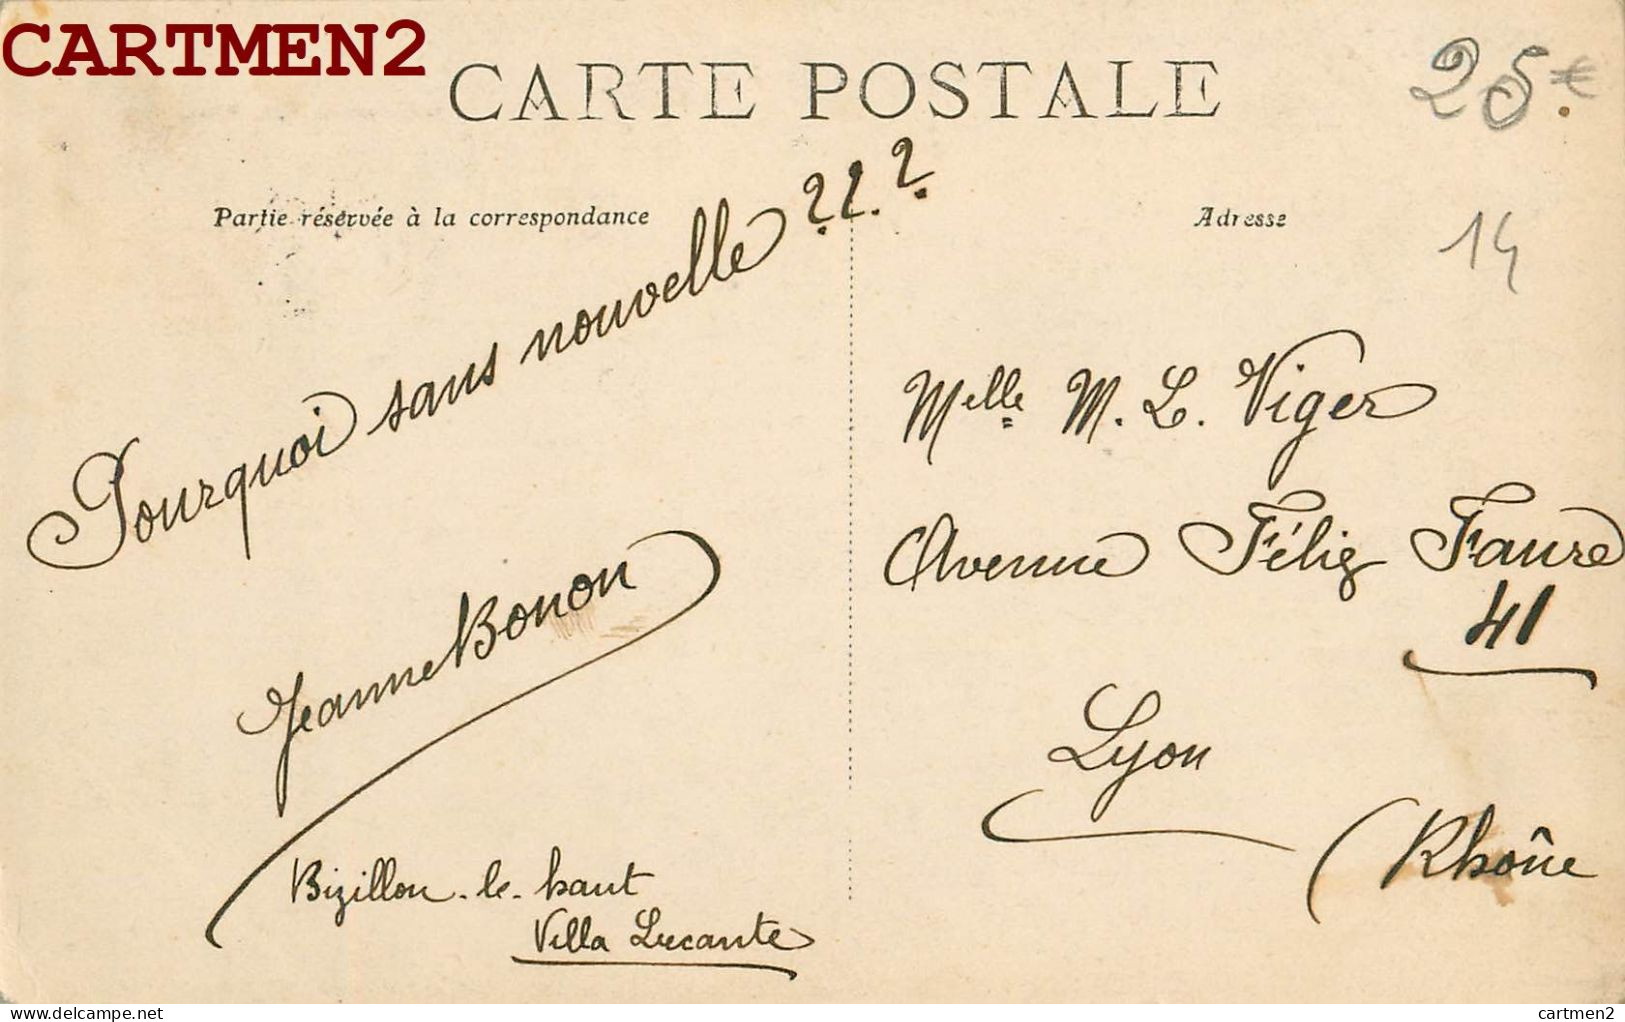 CARTMEN2
CARTE POSTALE
25 €
Partie réservée à la correspondance
Adresse
14
Pourquoi sans nouvelle ???
Jeanne Bonon
Bizillon-le-haut
Villa Lucante
Melle M. L. Viger
Avenue Félix Faure
41
Lyon
(Rhône
delcampe.net
cartmen2